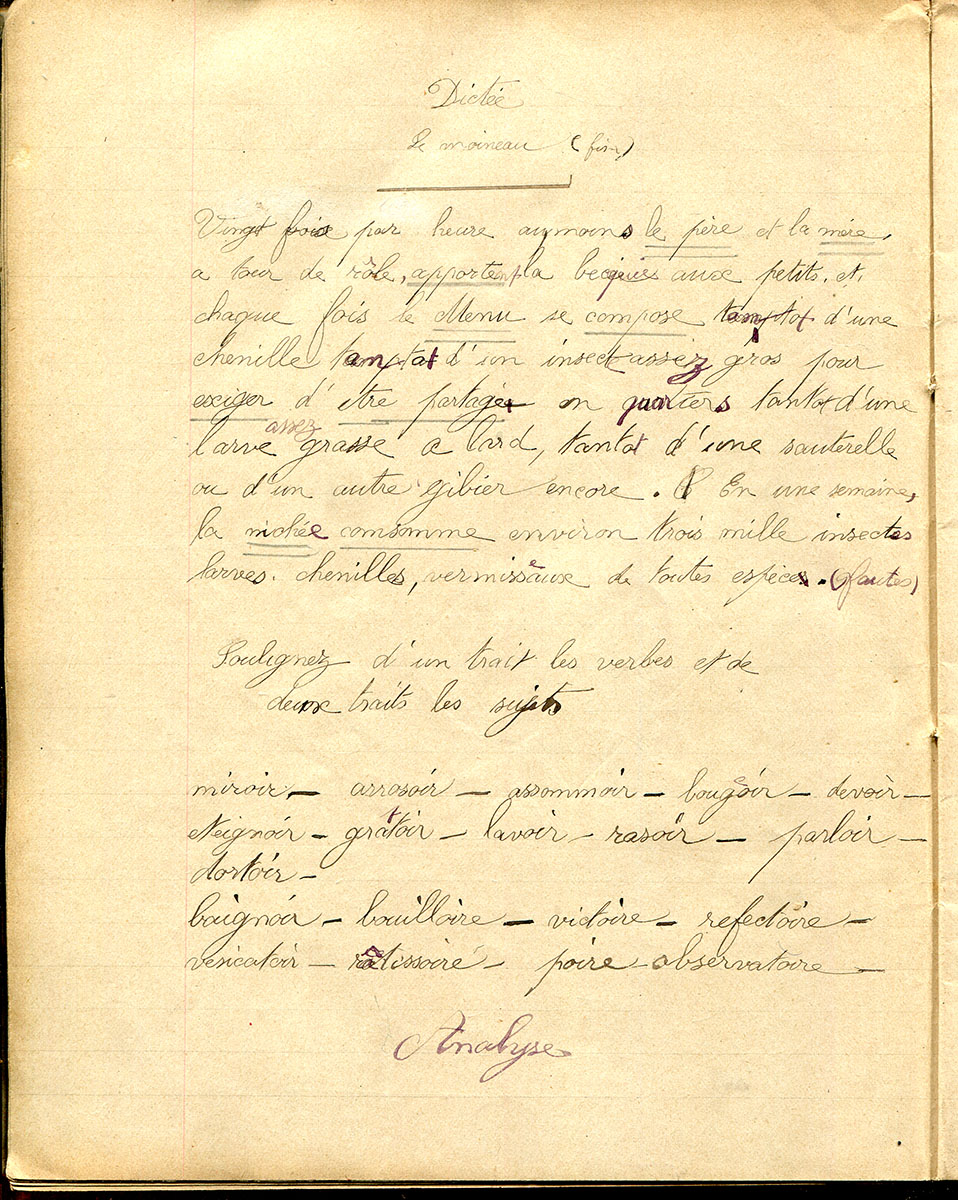 Dictée
Le moineau (fin)
Vingt fois par heure au moins le père et la mère,
a tour de rôle, apportent la becquée aux petits. et,
chaque fois le Menu se compose tantot d'une
chenille tantot d'un insecte assez gros pour
exiger d'être partagé en quartiers tantot d'une
assez
larve grasse a lard, tantot d'une sauterelle
ou d'un autre gibier encore. En une semaine,
la nichée consomme environ trois mille insectes
larves. chenilles, vermisseaux de toutes espèces. (9 fautes)
Soulignez d'un trait les verbes et de
deux traits les sujets
miroir, — arrosoir — assommoir — bougeoir — devoir —
éteignoir — grattoir — lavoir — rasoir — parloir —
dortoir —
baignoir — bouilloire — victoire — refectoire —
vésicatoir — rôtissoire — poire — observatoire —
Analyse